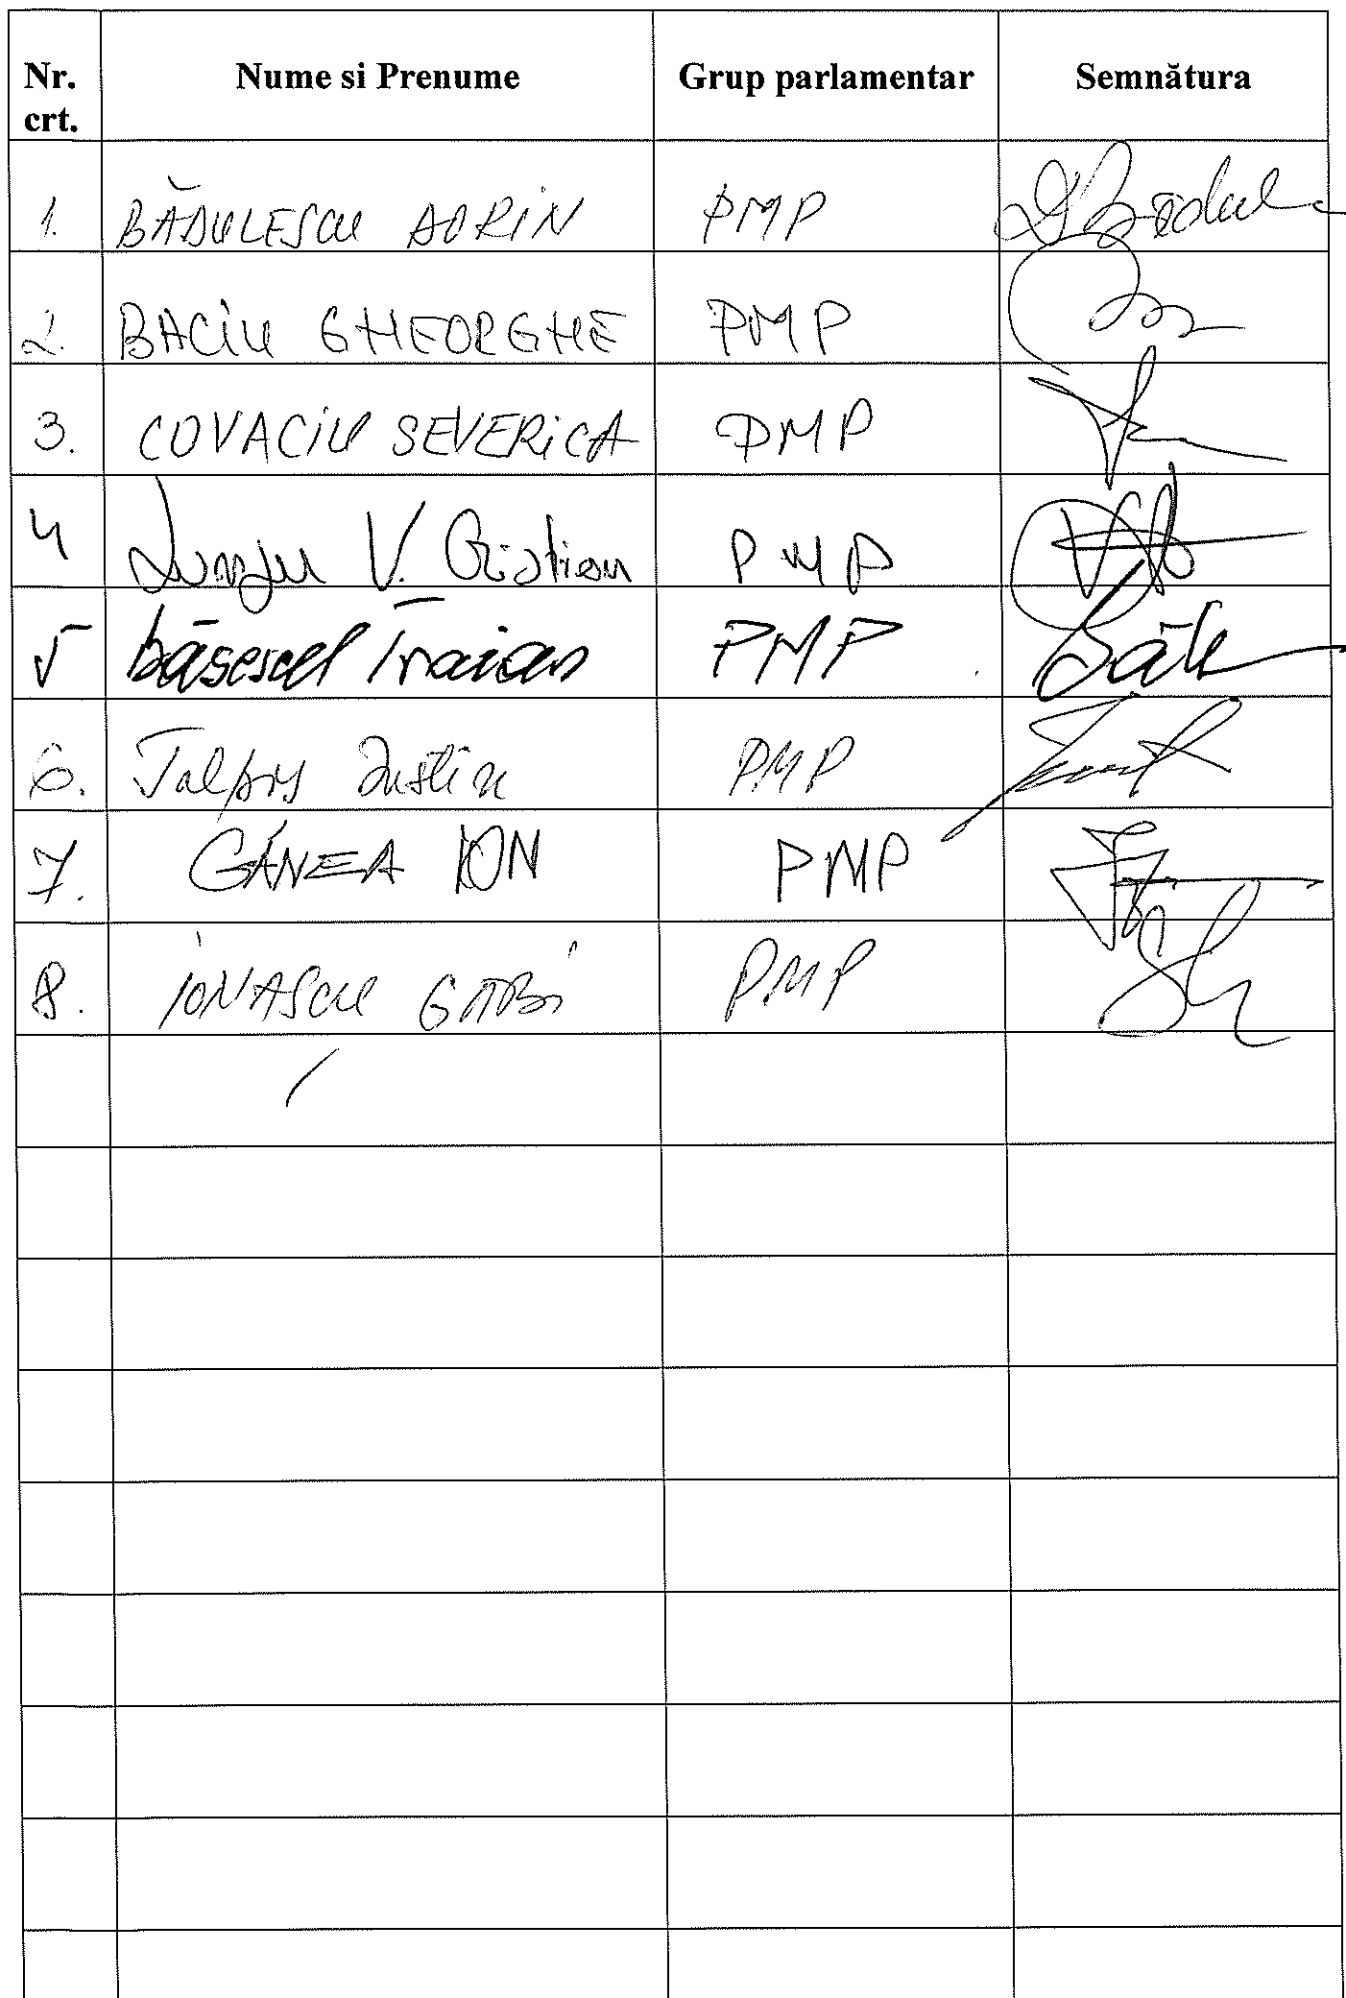 Nr. crt. Nume si Prenume Grup parlamentar Semnătura
1. BĂDULESCU DORIN PMP
2. BACIU GHEORGHE PMP
3. COVACIU SEVERICA PMP
4 Lungu V. Cristian PMP
5 băsescu Traian PMP
6. Talpoș Iustin PMP
7. GÂNEA ION PMP
8. IONAȘCU GABI PMP